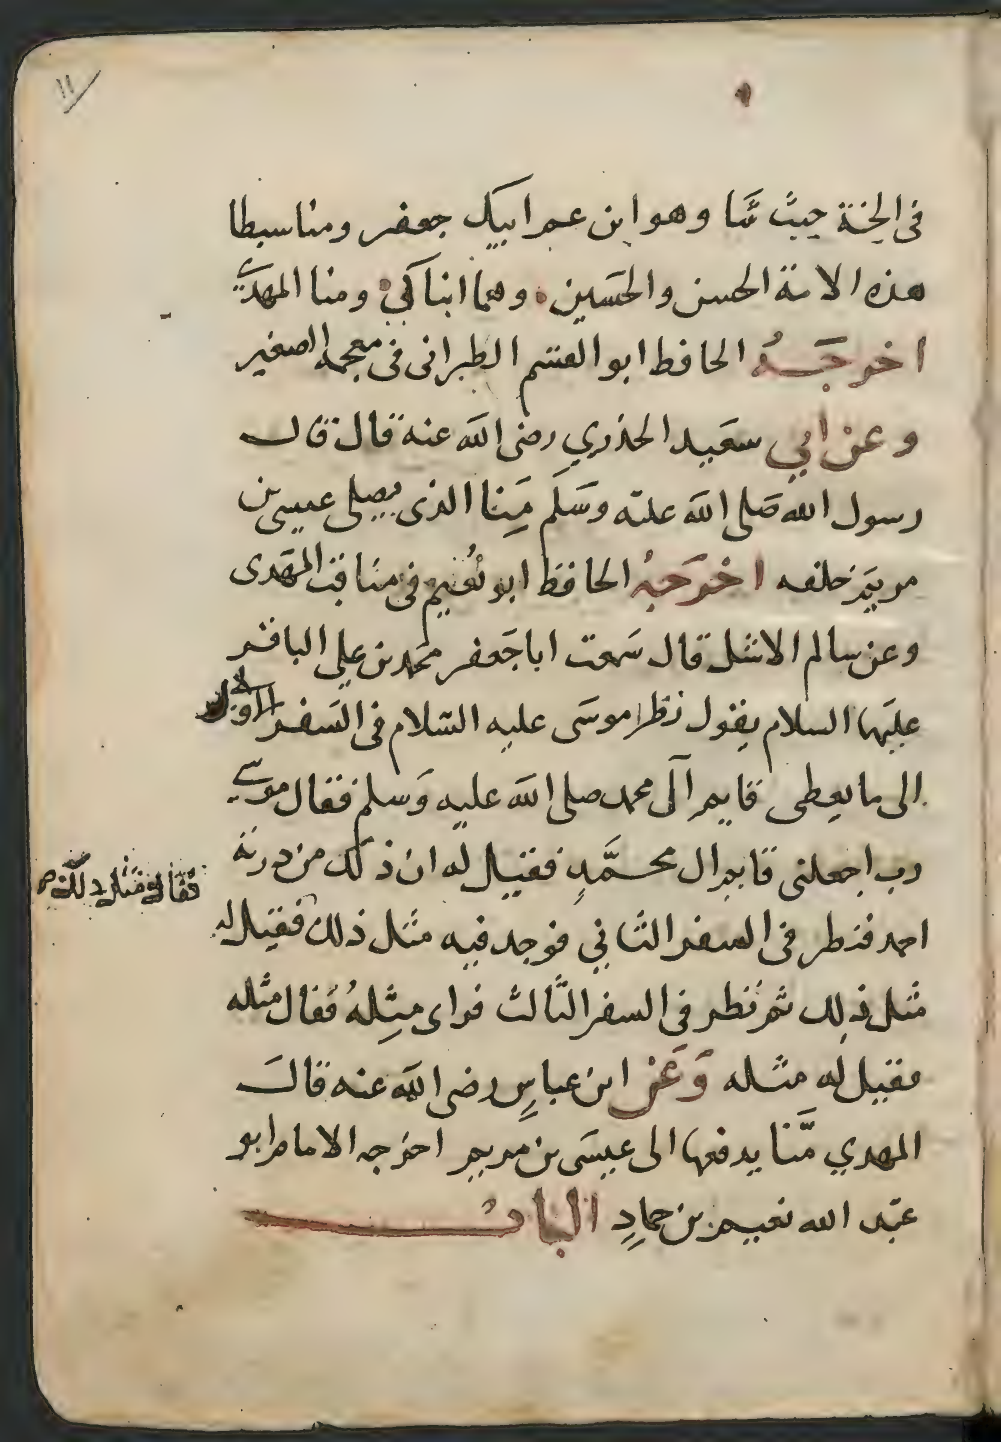 ١١
في الجنة حيث شا وهو ابن عم ابيك جعفر ومنا سبطا
هذه الامة الحسن والحسين وهما ابناكي ومنا المهدي
اخرجه الحافظ ابو القسم الطبراني في معجمه الصغير
وعن ابي سعيد الخذري رضي الله عنه قال قال
رسول الله صلى الله عليه وسلم منا الذي يصلى عيسى بن
مريم خلفه اخرجه الحافظ ابو نعيم في مناقب المهدى
وعن سالم الاشل قال سمعت اباجعفر محمد بن علي الباقر
عليهما السلام يقول نظر موسى عليه السلام في السفر الاول
الى ما يعطى قايم آل محمد صلى الله عليه وسلم فقال موسي
رب اجعلني قايم ال محمد فقيل له ان ذلك من ذرية
احمد فنظر في السفر الثاني فوجد فيه مثل ذلك فقيل له
فقال مثل ذلك صح
مثل ذلك ثم نظر في السفر الثالث فراى مثله فقال مثله
فقيل له مثله وعن ابن عباس رضي الله عنه قال
المهدي منا يدفعها الى عيسى بن مريم اخرجه الامام ابو
عبد الله نعيم بن حماد الباب